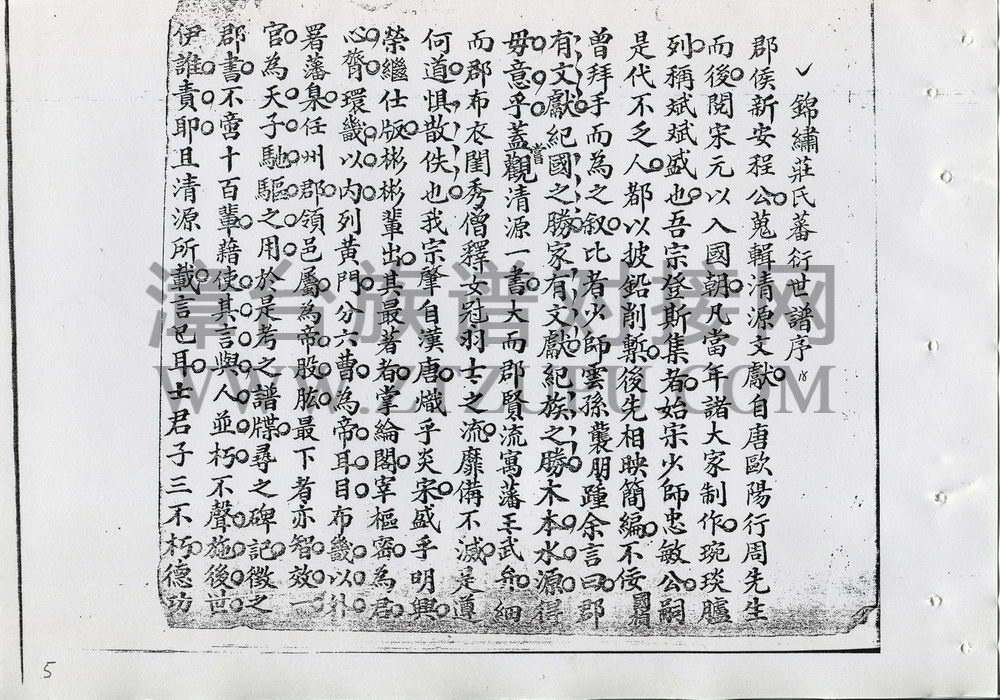 錦繡莊氏蕃衍世譜序
郡侯新安程公蒐輯清源文獻自唐歐陽行周先生
而後閱宋元以入國朝凡當年諸大家制作琬琰臚
列稱斌斌盛也吾宗登斯集者始宗少師忠敏公嗣
是代不乏人都以披鉛削槧後先相映簡編不佞國禎
曾拜手而為之叙比者少師雲孫龔朋踵余言曰郡
有文獻紀國之勝家有文獻紀族之勝木本水源得
毋意乎蓋嘗觀清源一書大而郡賢流寓藩王武弁細
而郡布衣閨秀僧釋女冠羽士之流靡備不滅是遵
何道懼散佚也我宗肇自漢唐熾乎炎宋盛乎明興
榮繼仕版彬彬輩出其最著者掌綸閣宰樞密為君
心膂環畿以內列黃門分六曹為帝耳目布畿以外
署藩臬任州郡領邑屬為帝股肱最下者亦智效一
官為天子馳驅之用於是考之譜牒尋之碑記徵之
郡書不啻十百輩藉使其言與人並朽不聲施後世
伊誰責耶且清源所載言已耳士君子三不朽德功
漳台族谱对接网
WWW.ZTZUPU.COM
5